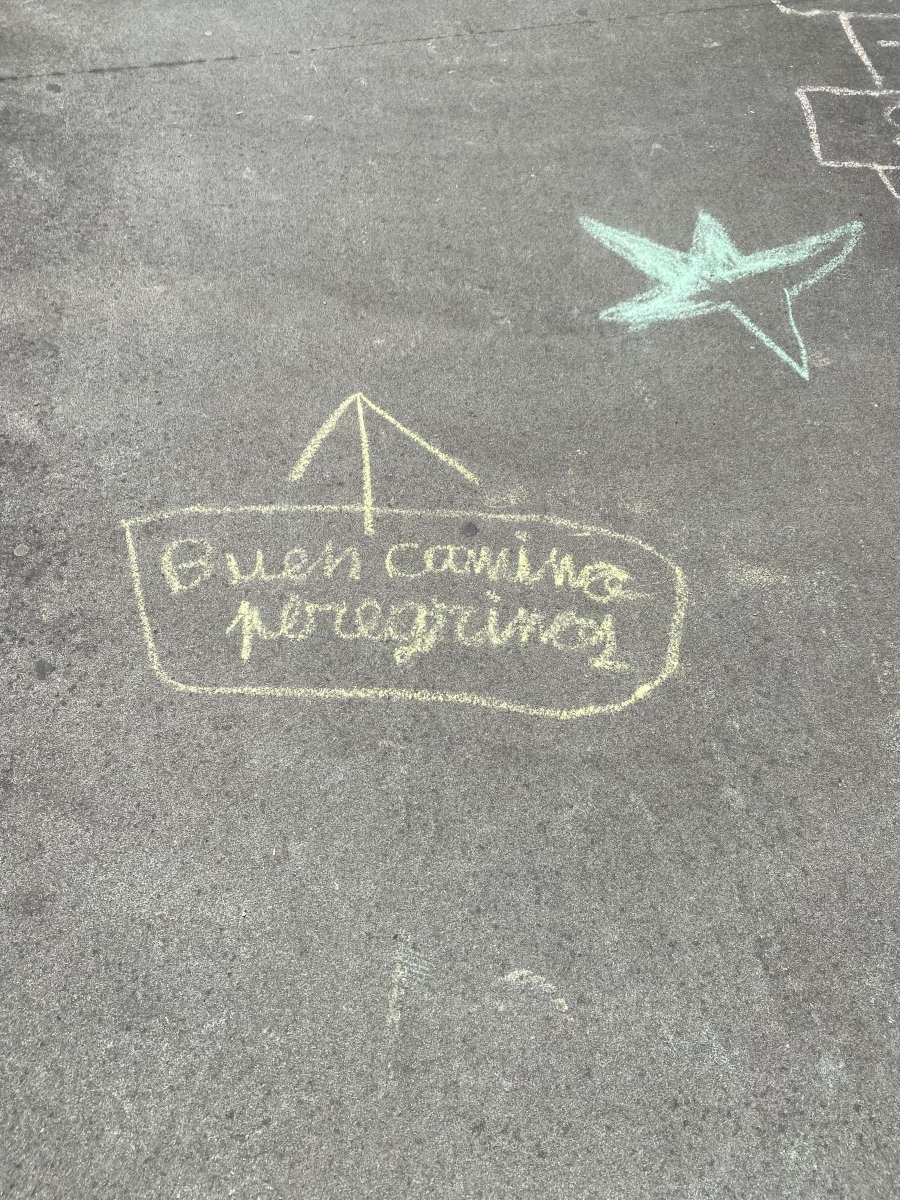 Buen camino
peregrinos